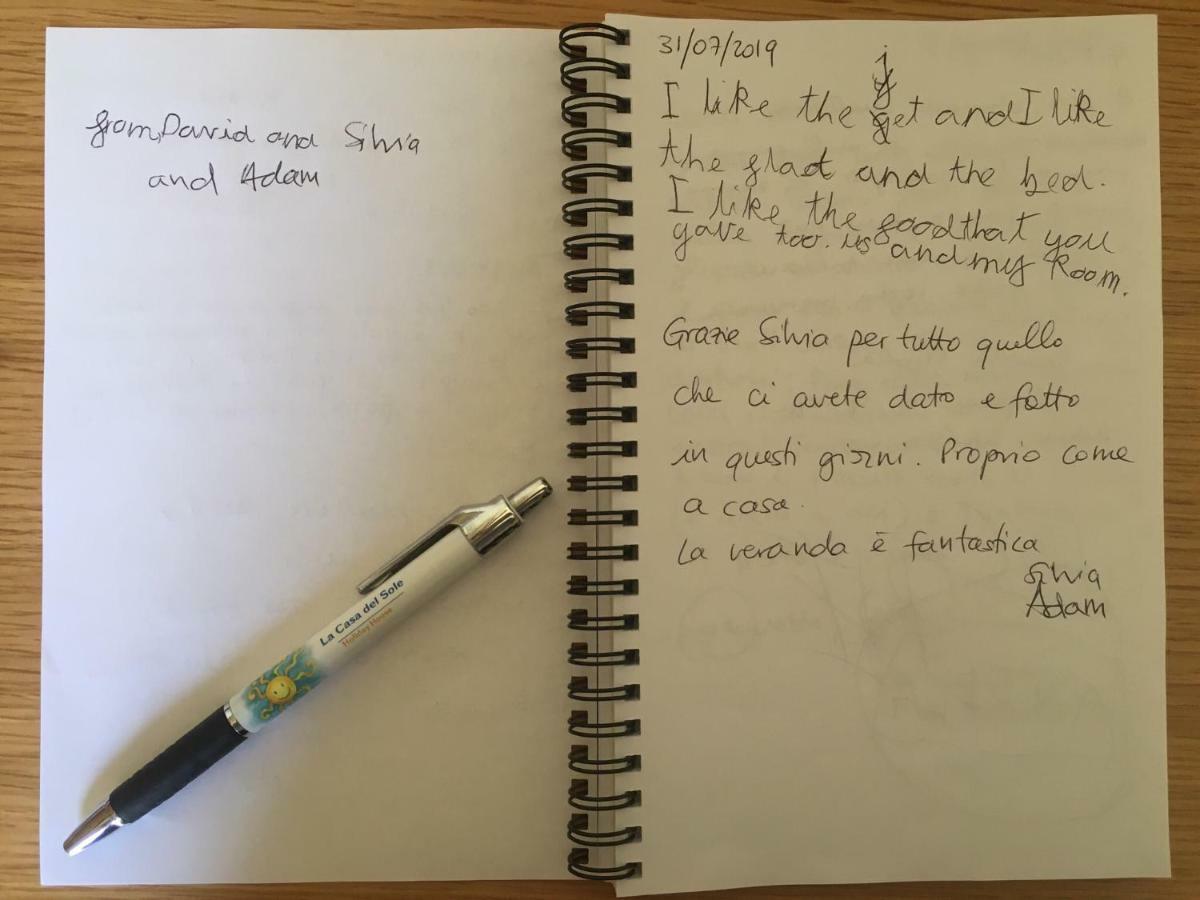 from, David and Silvia
and Adam
31/07/2019
I like the jet and I like
the flat and the bed.
I like the food that you
gave too. us and my Room.
Grazie Silvia per tutto quello
che ci avete dato e fatto
in questi giorni. Proprio come
a casa.
La veranda è fantastica
Silvia
Adam
La Casa del Sole
Holiday House